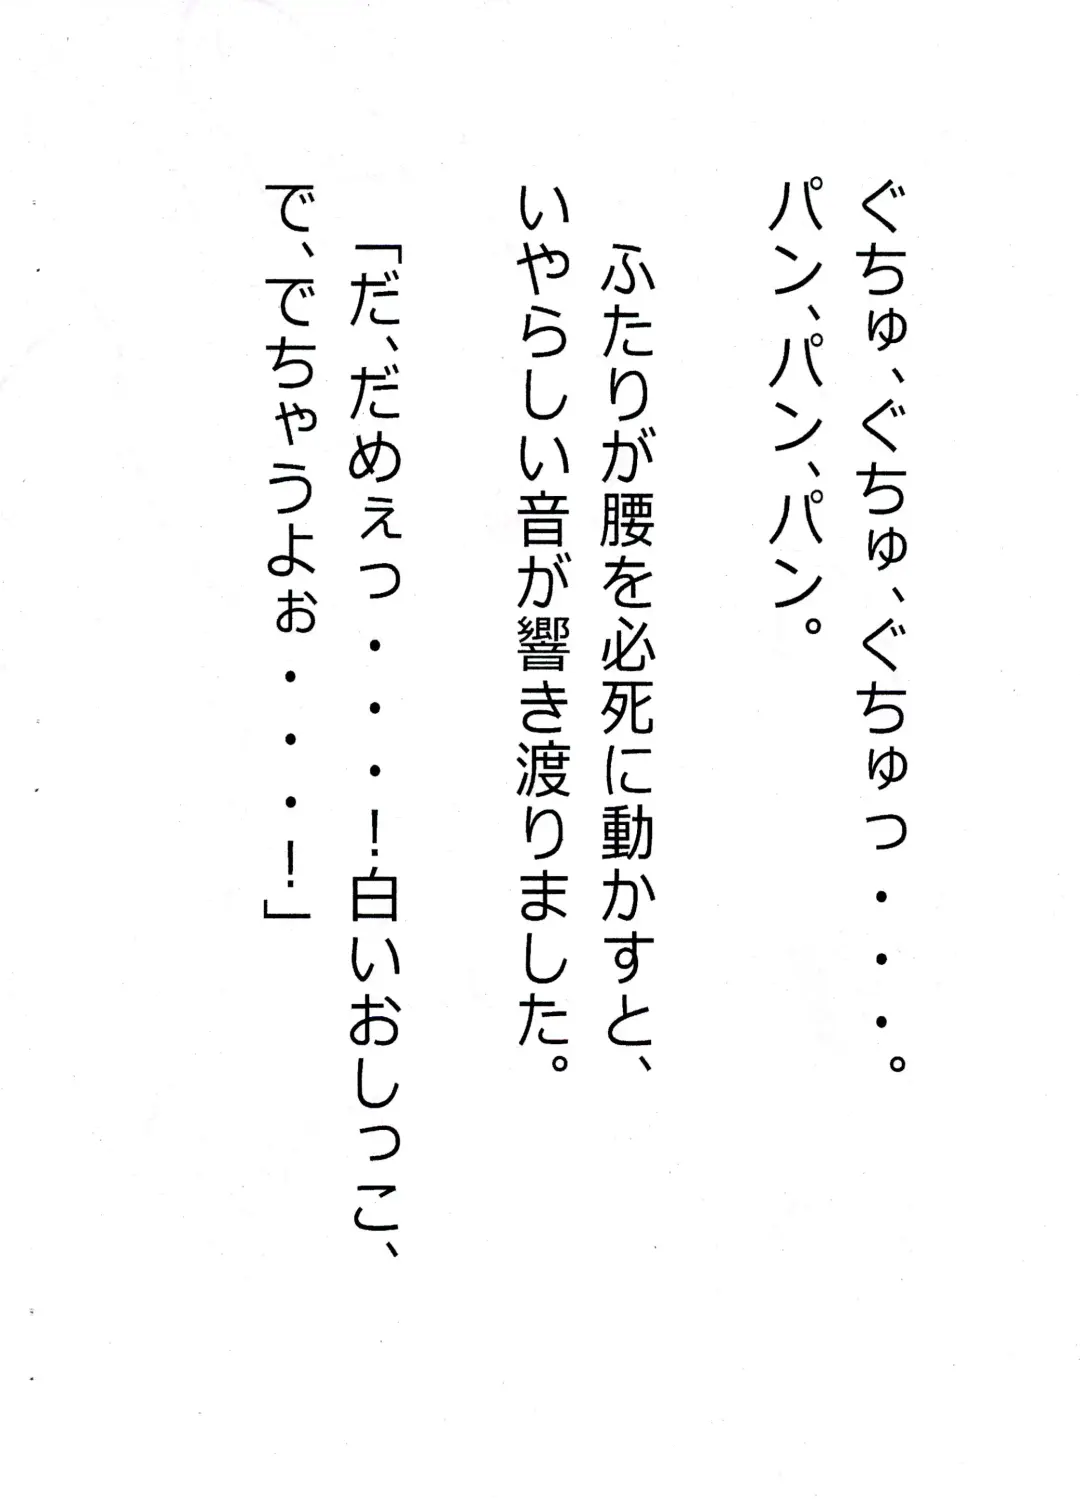 ぐちゅ、ぐちゅ、ぐちゅっ・・・。
パン、パン、パン。
ふたりが腰を必死に動かすと、
いやらしい音が響き渡りました。
「だ、だめぇっ・・・！白いおしっこ、
で、でちゃうよぉ・・・！」